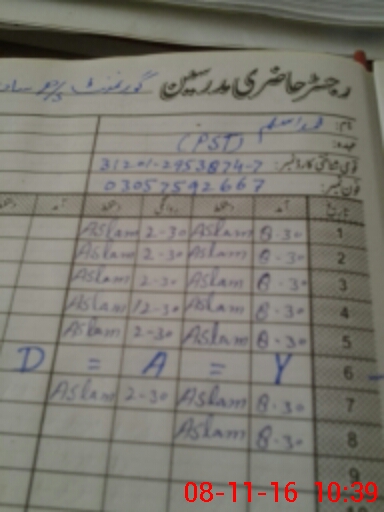 رجسٹر حاضری مدرسین گورنمنٹ
نام: محمد اسلم
عہدہ: (PST)
قومی شناختی کارڈ نمبر: 31201-2953874-7
فون نمبر: 03057592667
تاریخ آمد دستخط روانگی دستخط آمد
1 8-30 Aslam 2-30 Aslam
2 8-30 Aslam 2-30 Aslam
3 8-30 Aslam 2-30 Aslam
4 8-30 Aslam 12-30 Aslam
5 8-30 Aslam 2-30 Aslam
6 Y = A = D
7 8-30 Aslam 2-30 Aslam
8 8-30 Aslam
9
10
08-11-16 10:39